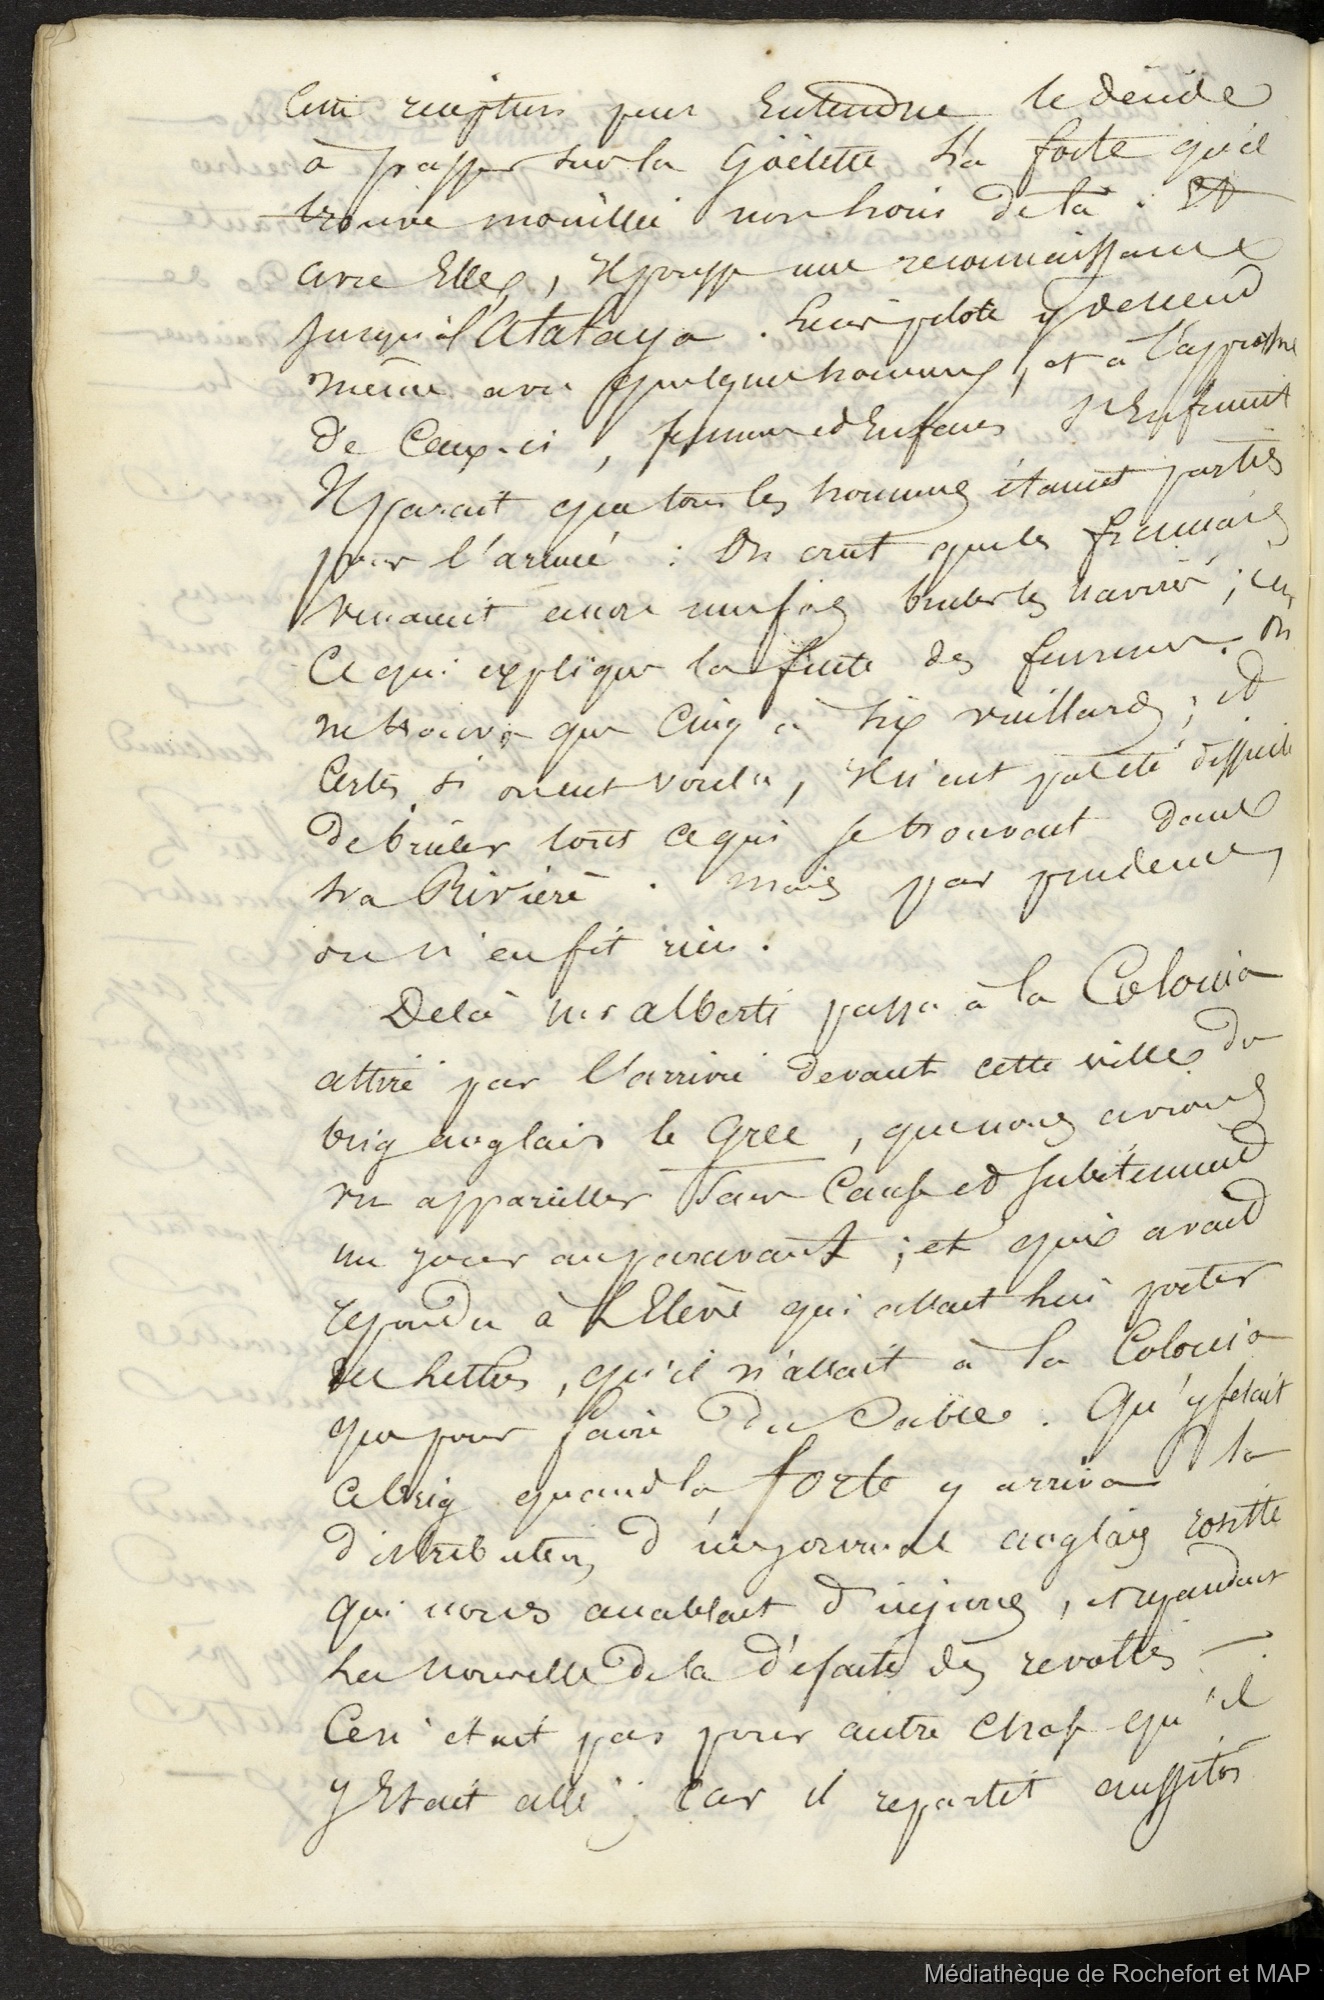 Cette reception peu Entendue le décide
à passer sur la Goëlette la forte qu'il
trouve mouillée non loin de là. Et
avec Elle, Il pousse une reconnaissance
jusqu'à l'Atalaya. Leur pilote y descend
même avec quelques hommes, et à l'approche
de Ceux-ci, femmes et Enfans s'Enfuient
Il parait que tous les hommes étaient partis
pour l'armée : On crut que les français
venaient encore une fois bruler les navires ;
Ce qui explique la fuite des femmes. On
ne trouva que Cinq à six vieillards ; et
Certes si on eut voulu, Il n'eut pas été difficile
de bruler tout ce qui se trouvait dans
la Rivière. mais par prudence,
on n'en fit rien.
Delà Mr alberti passa à la Colonia
attiré par l'arrivée devant cette ville du
brig anglais le Grec, que nous avions
vu appareiller sans Cause et subitement
un jour auparavant ; et qui avait
repondu à L'Elève qui allait lui porter
des Lettres, qu'il n'allait à la Colonia
que pour faire du Sable. Qu'y fesait
ce brig quand la forte y arriva la
distribution d'un journal anglais rosiste
qui nous accablait d'injures, et repandait
La Nouvelle de la défaite des revoltés —.
Ce n'était pas pour autre chose qu'il
y Etait allé ; car il repartit aussitôt
Médiathèque de Rochefort et MAP